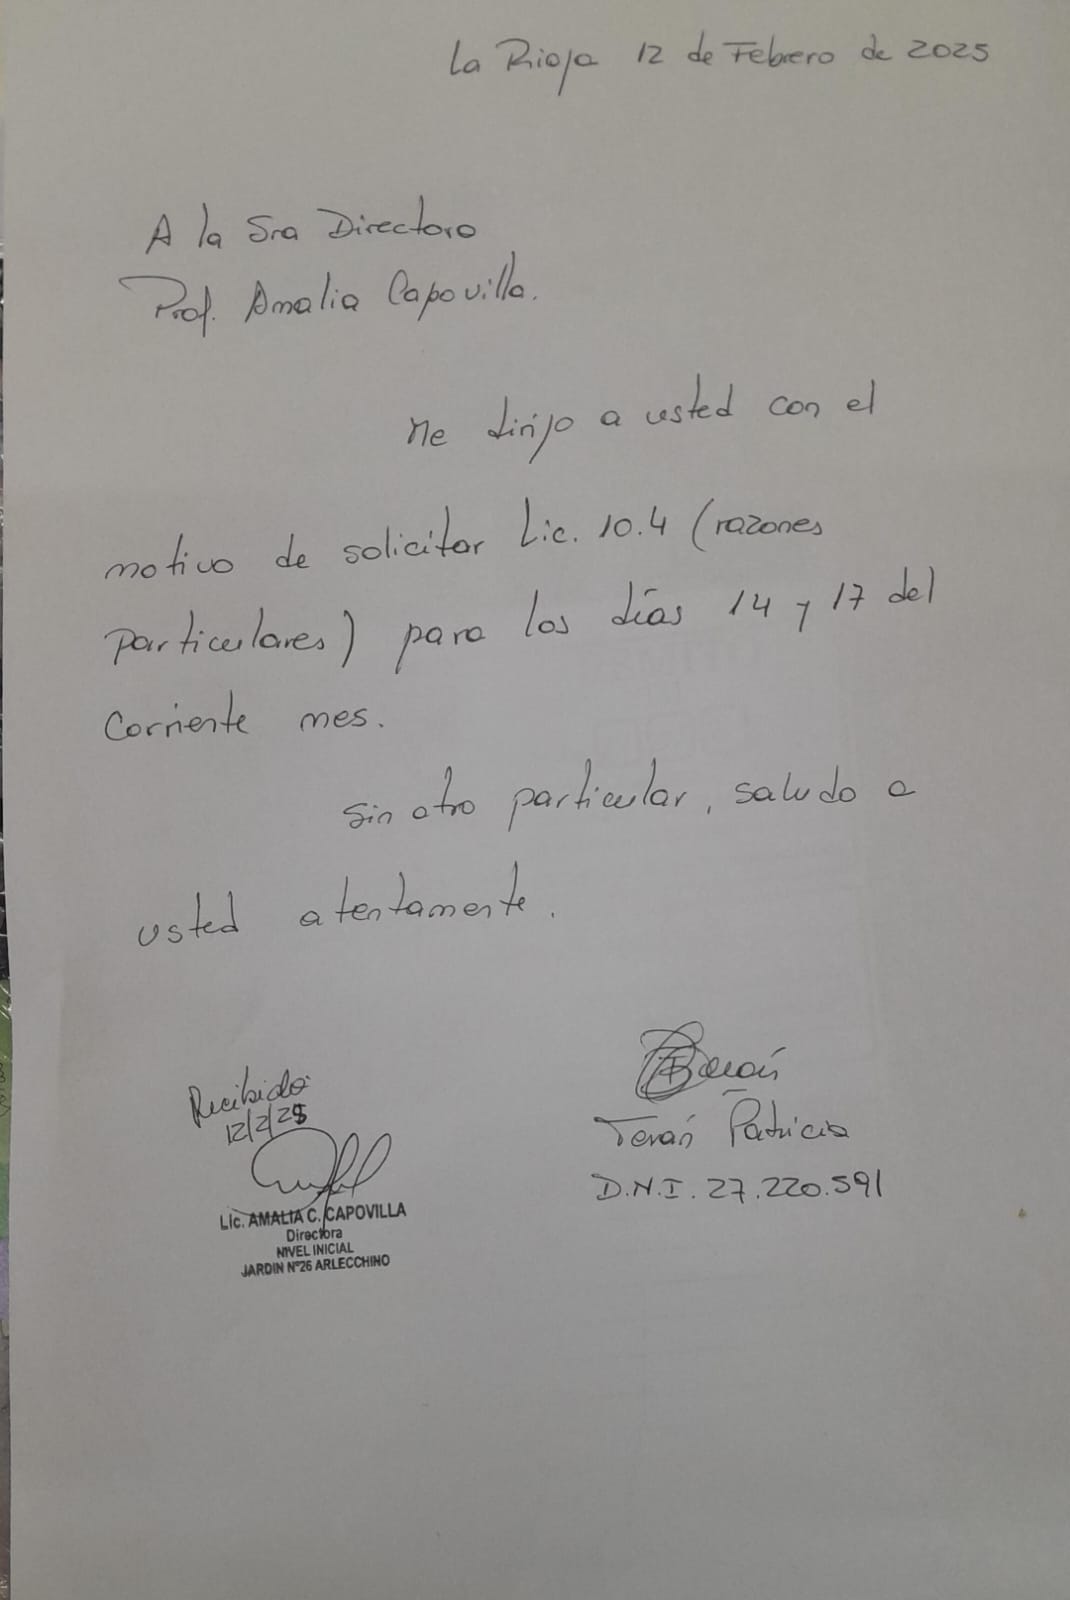 La Rioja 12 de Febrero de 2025
A la Sra Directora
Prof. Amalia Capovilla.
Me dirijo a usted con el
motivo de solicitar Lic. 10.4 (razones
particulares) para los días 14 y 17 del
corriente mes.
Sin otro particular, saludo a
usted atentamente.
Recibido
12/2/25
Lic. AMALIA C. CAPOVILLA
Directora
NIVEL INICIAL
JARDIN N°26 ARLECCHINO
Terán Patricia
D.N.I. 27.220.591